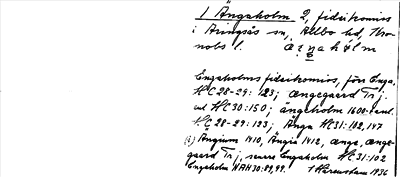 1 Ängsholm 2, fideikomiss
i Aringsås sn, Allbo hd, Kro-
nobs l. æŋahólm
Engaholms fideikomiss, förr Enga,
HC 28-29: 123; ængegaard Trj.
HC 30:150; ängeholm 1600-
HC 28-29: 123; Änga HC 31: 102, 147
Ängium 1410, Ängia 1412, ænge, ænge-
gaard Trj, senare Engaholm HC 31:102
Engaholm HAH 30: 89, 99. 1936